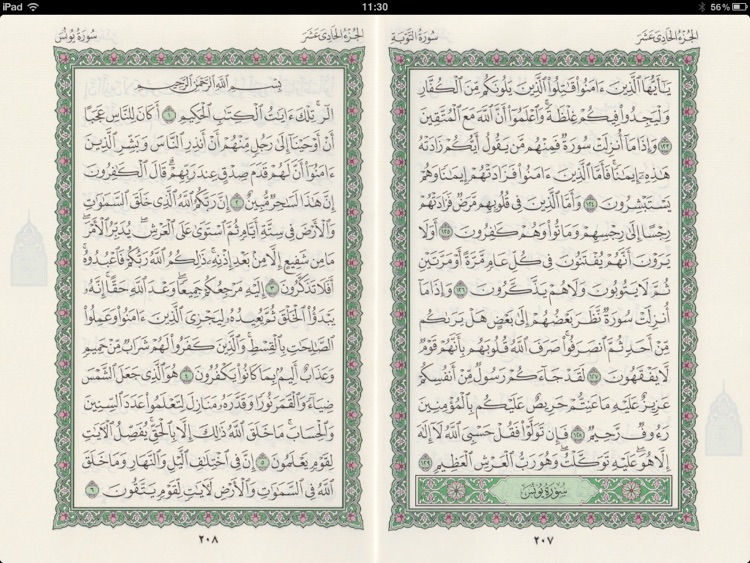 iPad
11:30
56%
الجزء الحادي عشر
سورة التوبة
يَٰٓأَيُّهَا ٱلَّذِينَ ءَامَنُوا۟ قَٰتِلُوا۟ ٱلَّذِينَ يَلُونَكُم مِّنَ ٱلْكُفَّارِ
وَلْيَجِدُوا۟ فِيكُمْ غِلْظَةً ۚ وَٱعْلَمُوٓا۟ أَنَّ ٱللَّهَ مَعَ ٱلْمُتَّقِينَ
١٢٣ وَإِذَا مَآ أُنزِلَتْ سُورَةٌ فَمِنْهُم مَّن يَقُولُ أَيُّكُمْ زَادَتْهُ
هَٰذِهِۦٓ إِيمَٰنًا ۚ فَأَمَّا ٱلَّذِينَ ءَامَنُوا۟ فَزَادَتْهُمْ إِيمَٰنًا وَهُمْ
يَسْتَبْشِرُونَ ١٢٤ وَأَمَّا ٱلَّذِينَ فِى قُلُوبِهِم مَّرَضٌ فَزَادَتْهُمْ
رِجْسًا إِلَىٰ رِجْسِهِمْ وَمَاتُوا۟ وَهُمْ كَٰفِرُونَ ١٢٥ أَوَلَا
يَرَوْنَ أَنَّهُمْ يُفْتَنُونَ فِى كُلِّ عَامٍ مَّرَّةً أَوْ مَرَّتَيْنِ
ثُمَّ لَا يَتُوبُونَ وَلَا هُمْ يَذَّكَّرُونَ ١٢٦ وَإِذَا مَآ
أُنزِلَتْ سُورَةٌ نَّظَرَ بَعْضُهُمْ إِلَىٰ بَعْضٍ هَلْ يَرَىٰكُم
مِّنْ أَحَدٍ ثُمَّ ٱنصَرَفُوا۟ ۚ صَرَفَ ٱللَّهُ قُلُوبَهُم بِأَنَّهُمْ قَوْمٌ
لَّا يَفْقَهُونَ ١٢٧ لَقَدْ جَآءَكُمْ رَسُولٌ مِّنْ أَنفُسِكُمْ
عَزِيزٌ عَلَيْهِ مَا عَنِتُّمْ حَرِيصٌ عَلَيْكُم بِٱلْمُؤْمِنِينَ
رَءُوفٌ رَّحِيمٌ ١٢٨ فَإِن تَوَلَّوْا۟ فَقُلْ حَسْبِىَ ٱللَّهُ لَآ إِلَٰهَ
إِلَّا هُوَ ۖ عَلَيْهِ تَوَكَّلْتُ ۖ وَهُوَ رَبُّ ٱلْعَرْشِ ٱلْعَظِيمِ ١٢٩
سُورَةُ يُونُسَ
٢٠٧
الجزء الحادي عشر
سورة يونس
بِسْمِ ٱللَّهِ ٱلرَّحْمَٰنِ ٱلرَّحِيمِ
الٓر ۚ تِلْكَ ءَايَٰتُ ٱلْكِتَٰبِ ٱلْحَكِيمِ ١ أَكَانَ لِلنَّاسِ عَجَبًا
أَنْ أَوْحَيْنَآ إِلَىٰ رَجُلٍ مِّنْهُمْ أَنْ أَنذِرِ ٱلنَّاسَ وَبَشِّرِ ٱلَّذِينَ
ءَامَنُوٓا۟ أَنَّ لَهُمْ قَدَمَ صِدْقٍ عِندَ رَبِّهِمْ ۗ قَالَ ٱلْكَٰفِرُونَ
إِنَّ هَٰذَا لَسَٰحِرٌ مُّبِينٌ ٢ إِنَّ رَبَّكُمُ ٱللَّهُ ٱلَّذِى خَلَقَ ٱلسَّمَٰوَٰتِ
وَٱلْأَرْضَ فِى سِتَّةِ أَيَّامٍ ثُمَّ ٱسْتَوَىٰ عَلَى ٱلْعَرْشِ ۖ يُدَبِّرُ ٱلْأَمْرَ ۖ
مَا مِن شَفِيعٍ إِلَّا مِنۢ بَعْدِ إِذْنِهِۦ ۚ ذَٰلِكُمُ ٱللَّهُ رَبُّكُمْ فَٱعْبُدُوهُ ۚ
أَفَلَا تَذَكَّرُونَ ٣ إِلَيْهِ مَرْجِعُكُمْ جَمِيعًا ۖ وَعْدَ ٱللَّهِ حَقًّا ۚ إِنَّهُۥ
يَبْدَؤُا۟ ٱلْخَلْقَ ثُمَّ يُعِيدُهُۥ لِيَجْزِىَ ٱلَّذِينَ ءَامَنُوا۟ وَعَمِلُوا۟
ٱلصَّٰلِحَٰتِ بِٱلْقِسْطِ ۚ وَٱلَّذِينَ كَفَرُوا۟ لَهُمْ شَرَابٌ مِّنْ حَمِيمٍ
وَعَذَابٌ أَلِيمٌۢ بِمَا كَانُوا۟ يَكْفُرُونَ ٤ هُوَ ٱلَّذِى جَعَلَ ٱلشَّمْسَ
ضِيَآءً وَٱلْقَمَرَ نُورًا وَقَدَّرَهُۥ مَنَازِلَ لِتَعْلَمُوا۟ عَدَدَ ٱلسِّنِينَ
وَٱلْحِسَابَ ۚ مَا خَلَقَ ٱللَّهُ ذَٰلِكَ إِلَّا بِٱلْحَقِّ ۚ يُفَصِّلُ ٱلْءَايَٰتِ
لِقَوْمٍ يَعْلَمُونَ ٥ إِنَّ فِى ٱخْتِلَٰفِ ٱلَّيْلِ وَٱلنَّهَارِ وَمَا خَلَقَ
ٱللَّهُ فِى ٱلسَّمَٰوَٰتِ وَٱلْأَرْضِ لَءَايَٰتٍ لِّقَوْمٍ يَتَّقُونَ ٦
٢٠٨